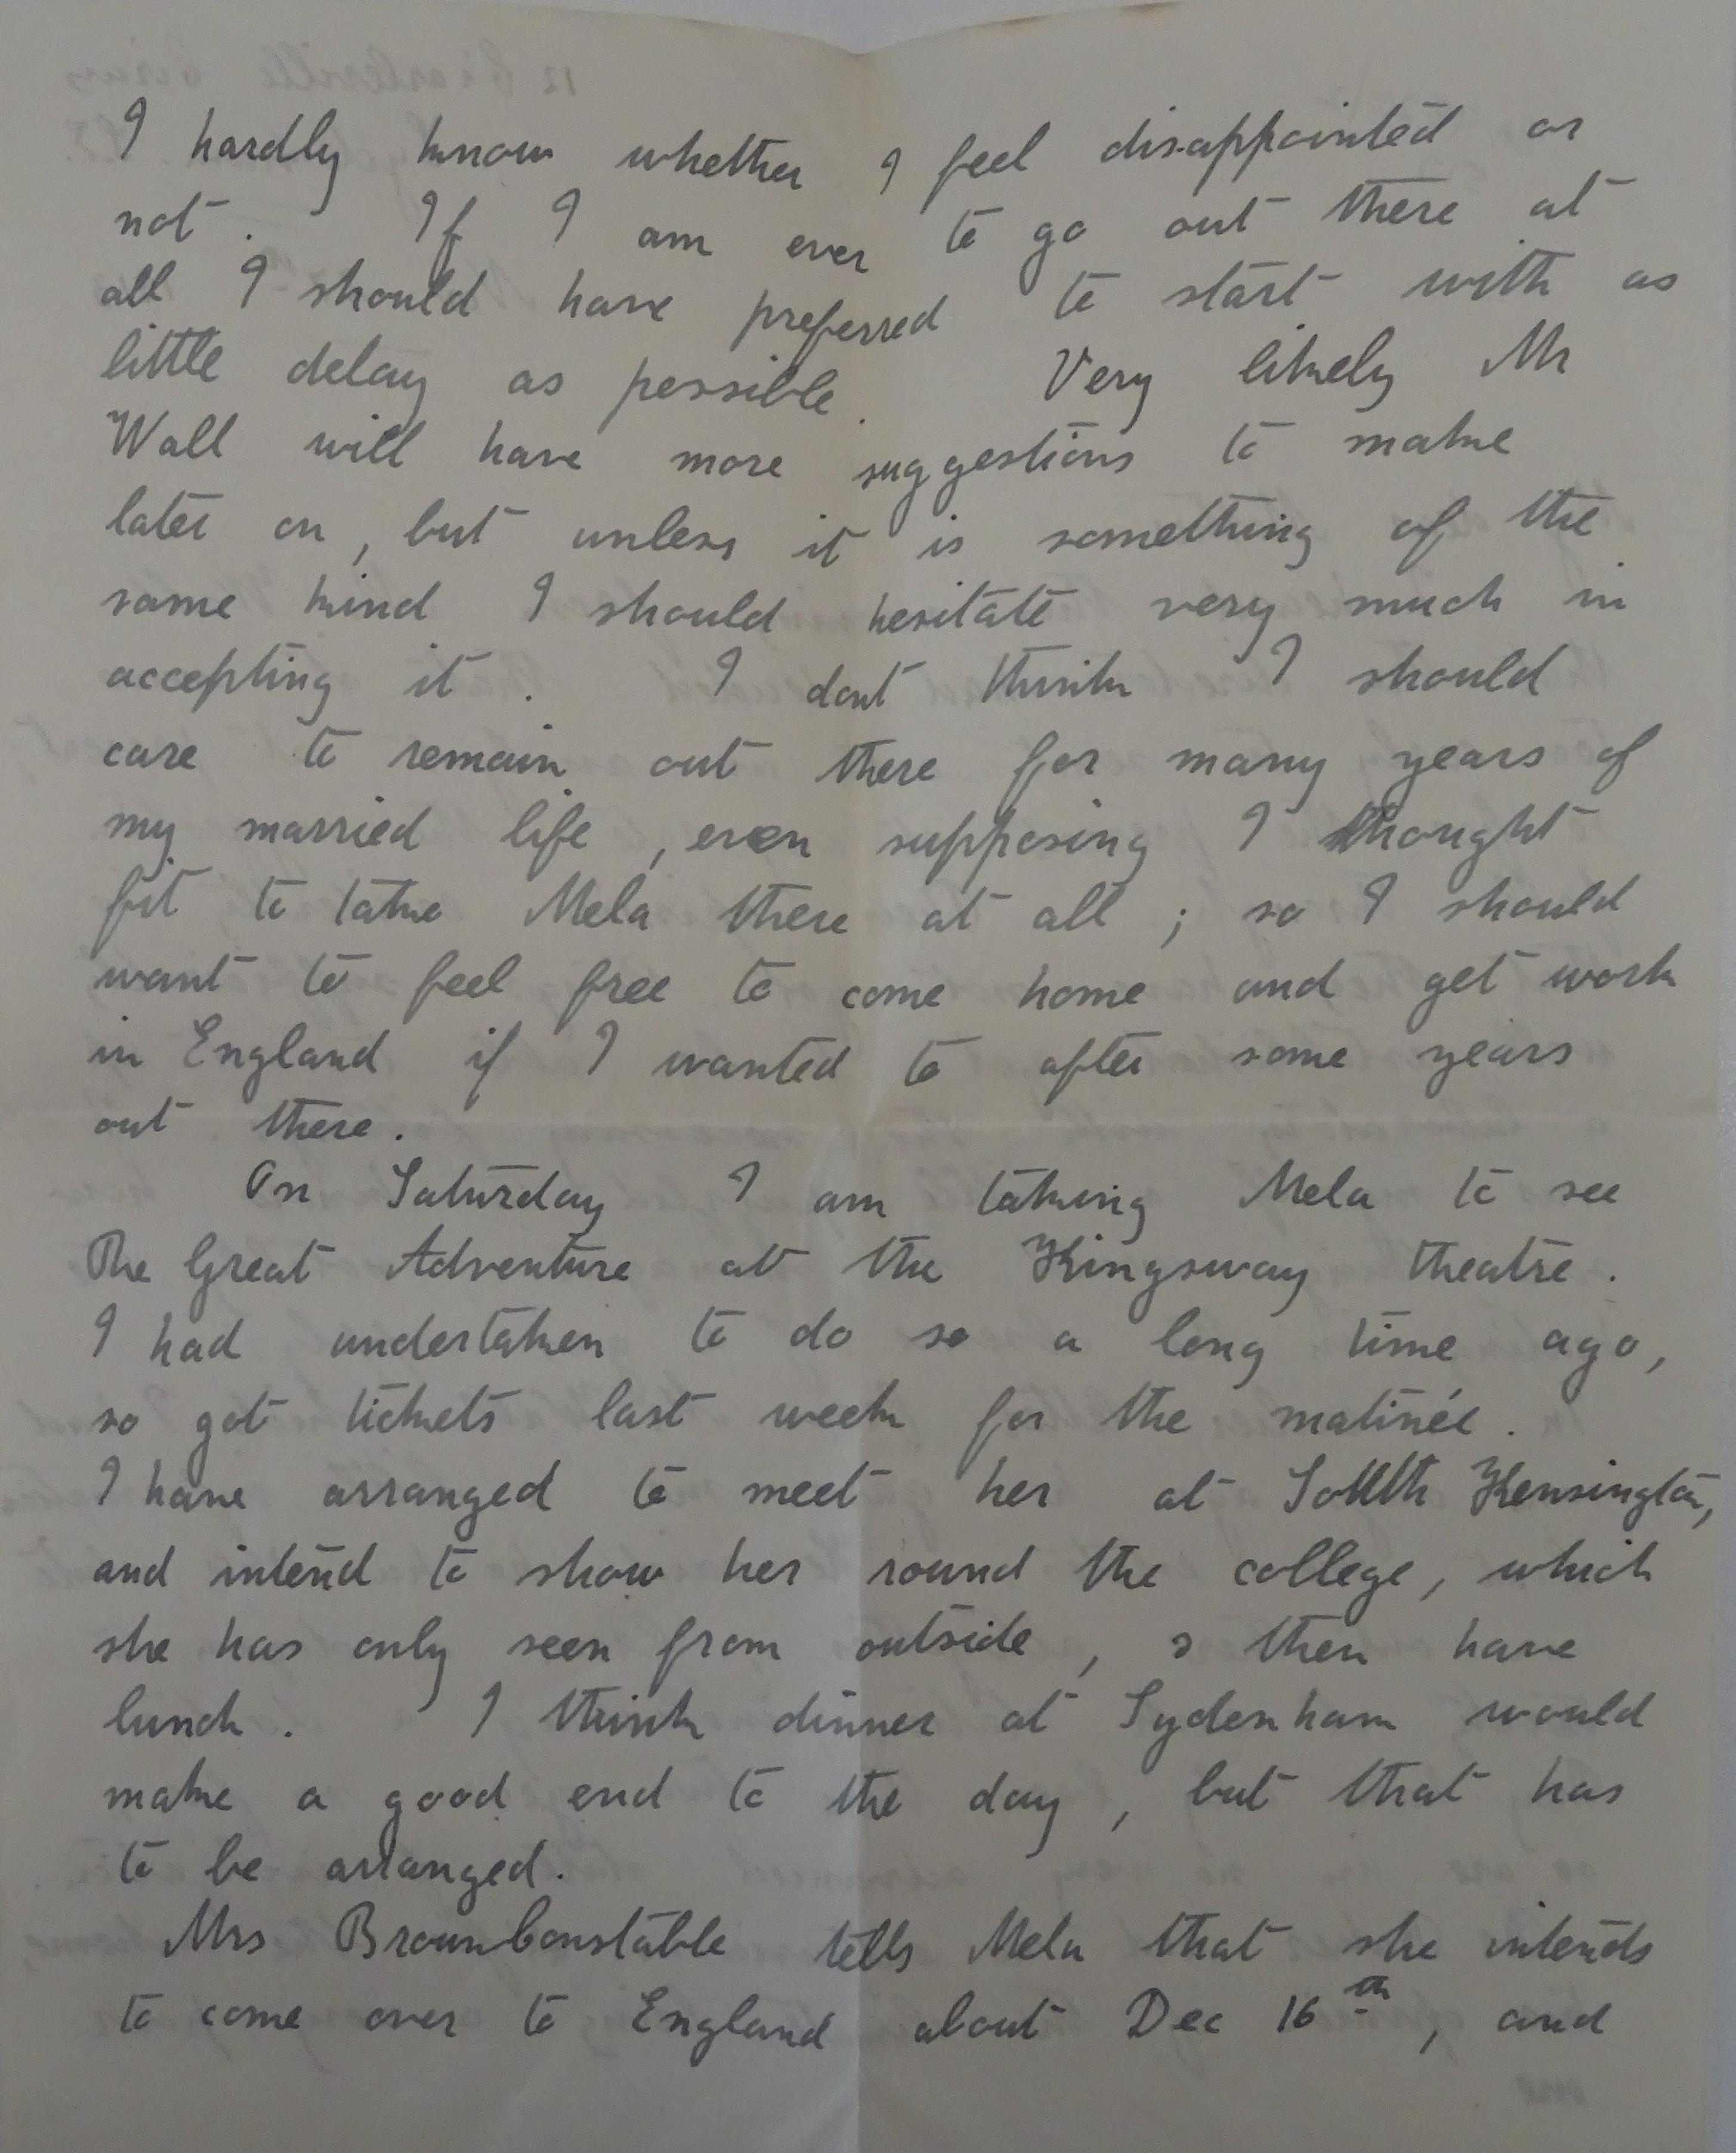 I hardly know whether I feel disappointed or
not. If I am ever to go out there at
all I should have preferred to start with as
little delay as possible. Very likely Mr
Wall will have more suggestions to make
later on, but unless it is something of the
same kind I should hesitate very much in
accepting it. I dont think I should
care to remain out there for many years of
my married life, even supposing I thought
fit to take Mela there at all; so I should
want to feel free to come home and get work
in England if I wanted to after some years
out there.
On Saturday I am taking Mela to see
The Great Adventure at the Kingsway theatre.
I had undertaken to do so a long time ago,
so got tickets last week for the matinée.
I have arranged to meet her at South Kensington,
and intend to show her round the college, which
she has only seen from outside, & then have
lunch. I think dinner at Sydenham would
make a good end to the day, but that has
to be arranged.
Mrs BrownConstable tells Mela that she intends
to come over to England about Dec 16th, and